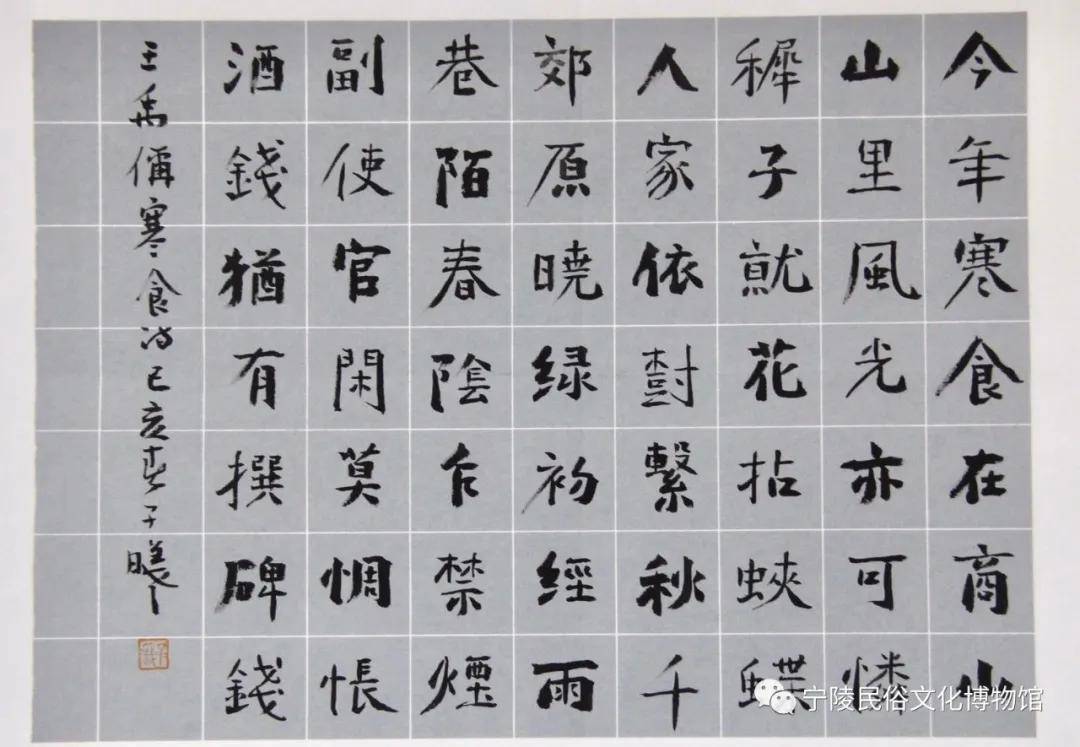 今年寒食在商山
山里風光亦可憐
穉子就花拈蛺蝶
人家依樹繫秋千
郊原暁緑初經雨
巷陌春陰乍禁煙
副使官閑莫惆悵
酒錢猶有撰碑錢
王禹偁寒食詩己亥春子曦
宁陵民俗文化博物馆